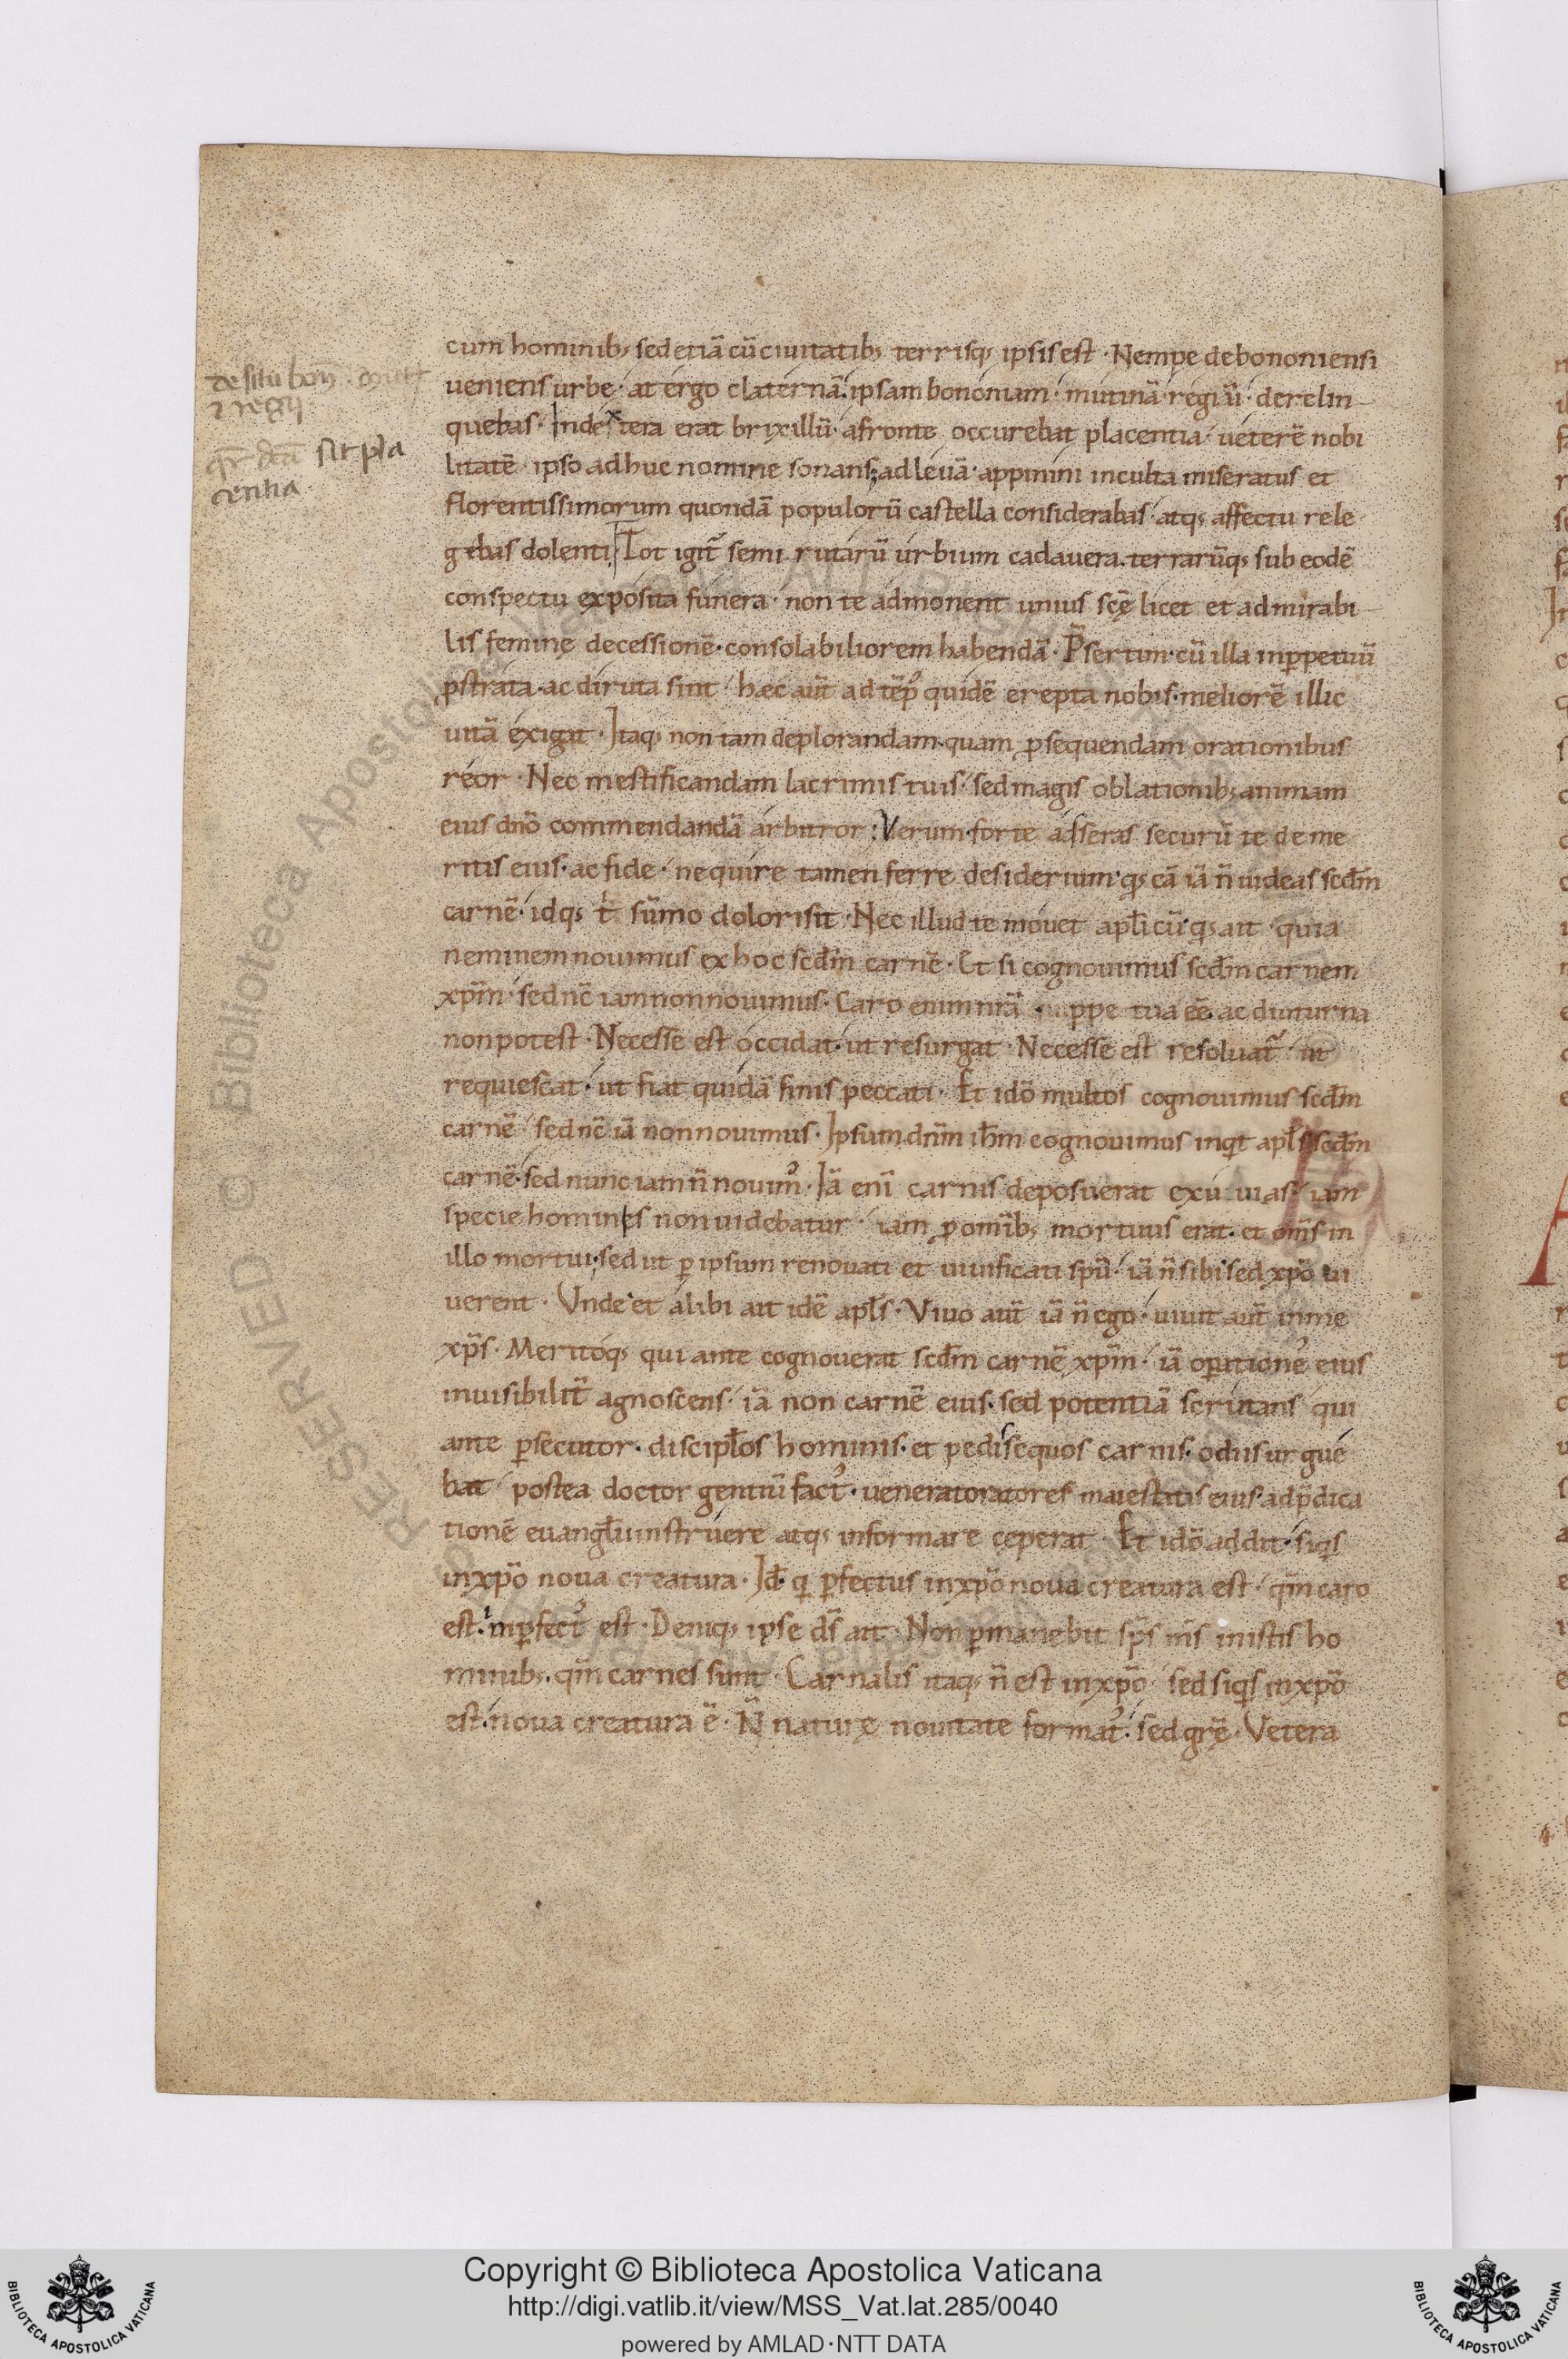 cum hominib; sed etiã cũ ciuitatib; terrisq; ipsis est · Nempe debononiensi
ueniens urbe · at ergo claternã · ipsam bononiam · mutinã · regiũ · derelin-
quebas · Inde xtera erat brixillũ · afronte occurebat placentia · ueterẽ nobi
litatẽ ipso adhuc nomine sonans; ad leuã · appinini inculta miseratus et
florentissimorum quondã populorũ castella considerabas · atq; affectu rele
gebas dolenti · Tot igit̃ semi rutarũ urbium cadauera · terrarũq; sub eodẽ
conspectu exposita funera · non te admonent unius scę̃ licet et admirabi-
lis feminę decessionẽ · consolabiliorem habendã · P̃sertim · cũ illa inꝑpetuũ
ꝓstrata · ac diruta sint · hæc aũt ad tẽꝑ quidẽ erepta nobis · meliorẽ illic
uitã exigat · Itaq; non tam deplorandam · quam ꝓsequendam orationibus
reor · Nec mestificandam lacrimis tuis · sed magis oblationib; animam
eius dñõ commendandã arbitror : Verum forte adseras securũ te de me
ritis eius · ac fide · nequire tamen ferre desiderium · q; eã iã ñ uideas scđm
carnẽ · idq; t̃ sũmo dolori sit · Nec illud te mouet apłicũ · q; ait · quia
neminem nouimus ex hoc scđm carnẽ · Et si cognouimus scđm carnem
xpm̃ · sed nc̃ iam non nouimus · Caro enim nr̃ã · ꝑpe tua eẽ ac diuturna
non potest · Necesse est occidat · ut resurgat · Necesse est resoluat̃ · ut
requiescat · ut fiat quidã finis peccati · Et idõ multos cognouimus scđm
carnẽ · sed nc̃ iã non nouimus · Ipsum dñm ihm̃ cognouimus inqt apłs scđm
carnẽ · sed nunc iam ñ nouim᾽ · Iã enĩ carnis deposuerat exuuias · iam
specie homines non uidebatur · iam ꝓ omĩb; mortuus erat · et oms̃ in
illo mortui · sed ut ꝑ ipsum renouati et uiuificati spũ · iã ñ sibi · sed xpõ ui
uerent · Vnde et alibi ait idẽ apłs · Viuo aũt iã ñ ego · uiuit aũt inme
xps̃ · Meritoq; qui ante cognouerat scđm carnẽ xpm̃ · iã oꝑationẽ eius
inuisibilit̃ agnoscens · iã non carnẽ eius · sed potentiã scrutans · qui
ante ꝑsecutor · discipłos hominis · et pedisequos carnis · odiis urgue
bat · postea doctor gentiũ fact᾽ · ueneratoratores maiestatis eius · ad p̃dica
tionẽ euangłii instruere atq; informare cęperat · Et idõ addit · siqs
inxpõ noua creatura · Iđ · q ꝑfectus inxpõ noua creatura est · qm̃ caro
est · inꝑfect᾽ est · Deniq; ipse ds̃ ait · Non ꝑmanebit sps̃ ms̃ inistis ho
minib; · qm̃ carnes sunt · Carnalis itaq; ñ est inxpõ · sed siqs inxpõ
est · noua creatura ẽ · Ñ naturę nouitate format᾽ · sed grę̃ · Vetera
de situ bon̄ · mut
⁊ regij
qr̄ dc̄ā sit pla
centia
RESERVED © Biblioteca Apostolica Vaticana
Copyright © Biblioteca Apostolica Vaticana
http://digi.vatlib.it/view/MSS_Vat.lat.285/0040
powered by AMLAD·NTT DATA
BIBLIOTECA APOSTOLICA VATICANA
BIBLIOTECA APOSTOLICA VATICANA